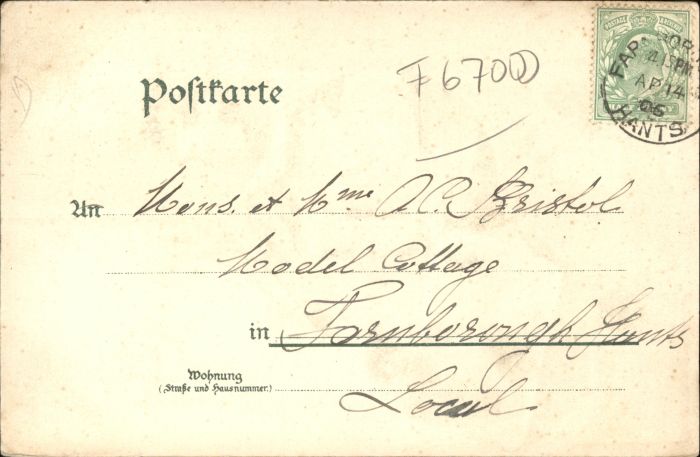 F6700
Postkarte
POSTAGE & REVENUE
FARNBORO
4 15 PM
AP 14
06
HANTS
An Mons. et Mme A. C. Bristol
Model Cottage
in Farnborough Hants
Wohnung
(Straße und Hausnummer.)
Local